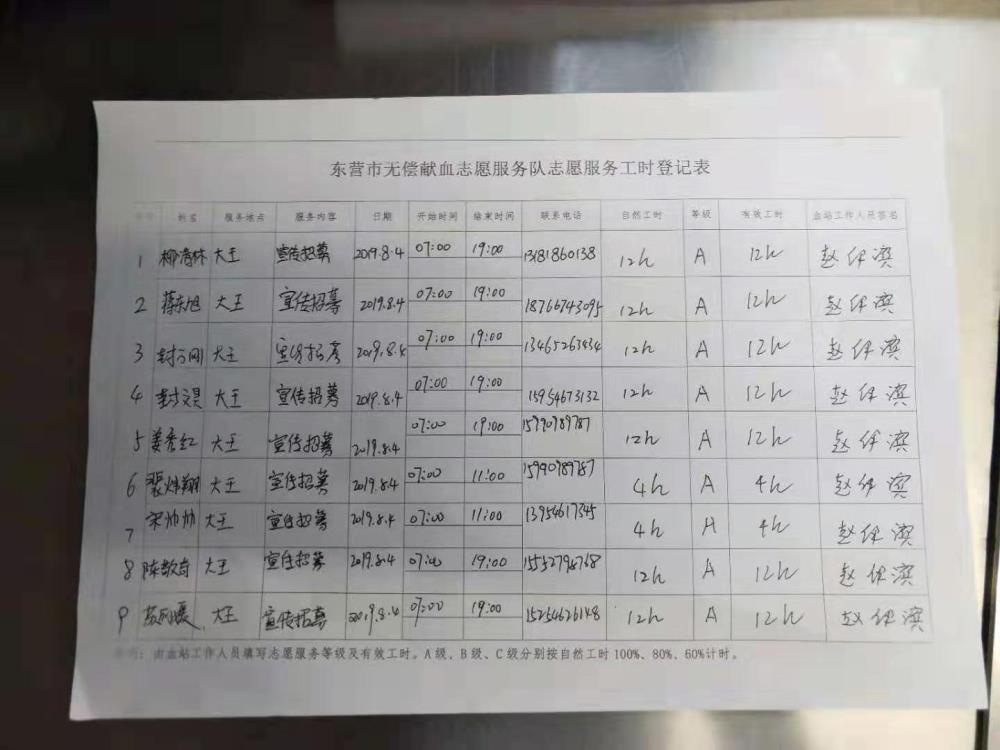 东营市无偿献血志愿服务队志愿服务工时登记表
姓名 服务地点 服务内容 日期 开始时间 结束时间 联系电话 自然工时 等级 有效工时 血站工作人员签名
1 大王 宣传招募 2019.8.4 07:00 19:00 13181860138 12h A 12h
2 蒋东旭 大王 宣传招募 2019.8.4 07:00 19:00 18766743095 12h A 12h
3 大王 宣传招募 2019.8.4 07:00 19:00 13465263434 12h A 12h
4 大王 宣传招募 2019.8.4 07:00 19:00 15954673132 12h A 12h
5 姜秀红 大王 宣传招募 2019.8.4 07:00 19:00 12h A 12h
6 大王 宣传招募 2019.8.4 07:00 11:00 4h A 4h
7 宋帅帅 大王 宣传招募 2019.8.4 07:00 11:00 13954617345 4h A 4h
8 大王 宣传招募 2019.8.4 07:00 19:00 12h A 12h
9 大王 宣传招募 2019.8.4 07:00 19:00 15254626148 12h A 12h
由血站工作人员填写志愿服务等级及有效工时。A级、B级、C级分别按自然工时100%、80%、60%计时。